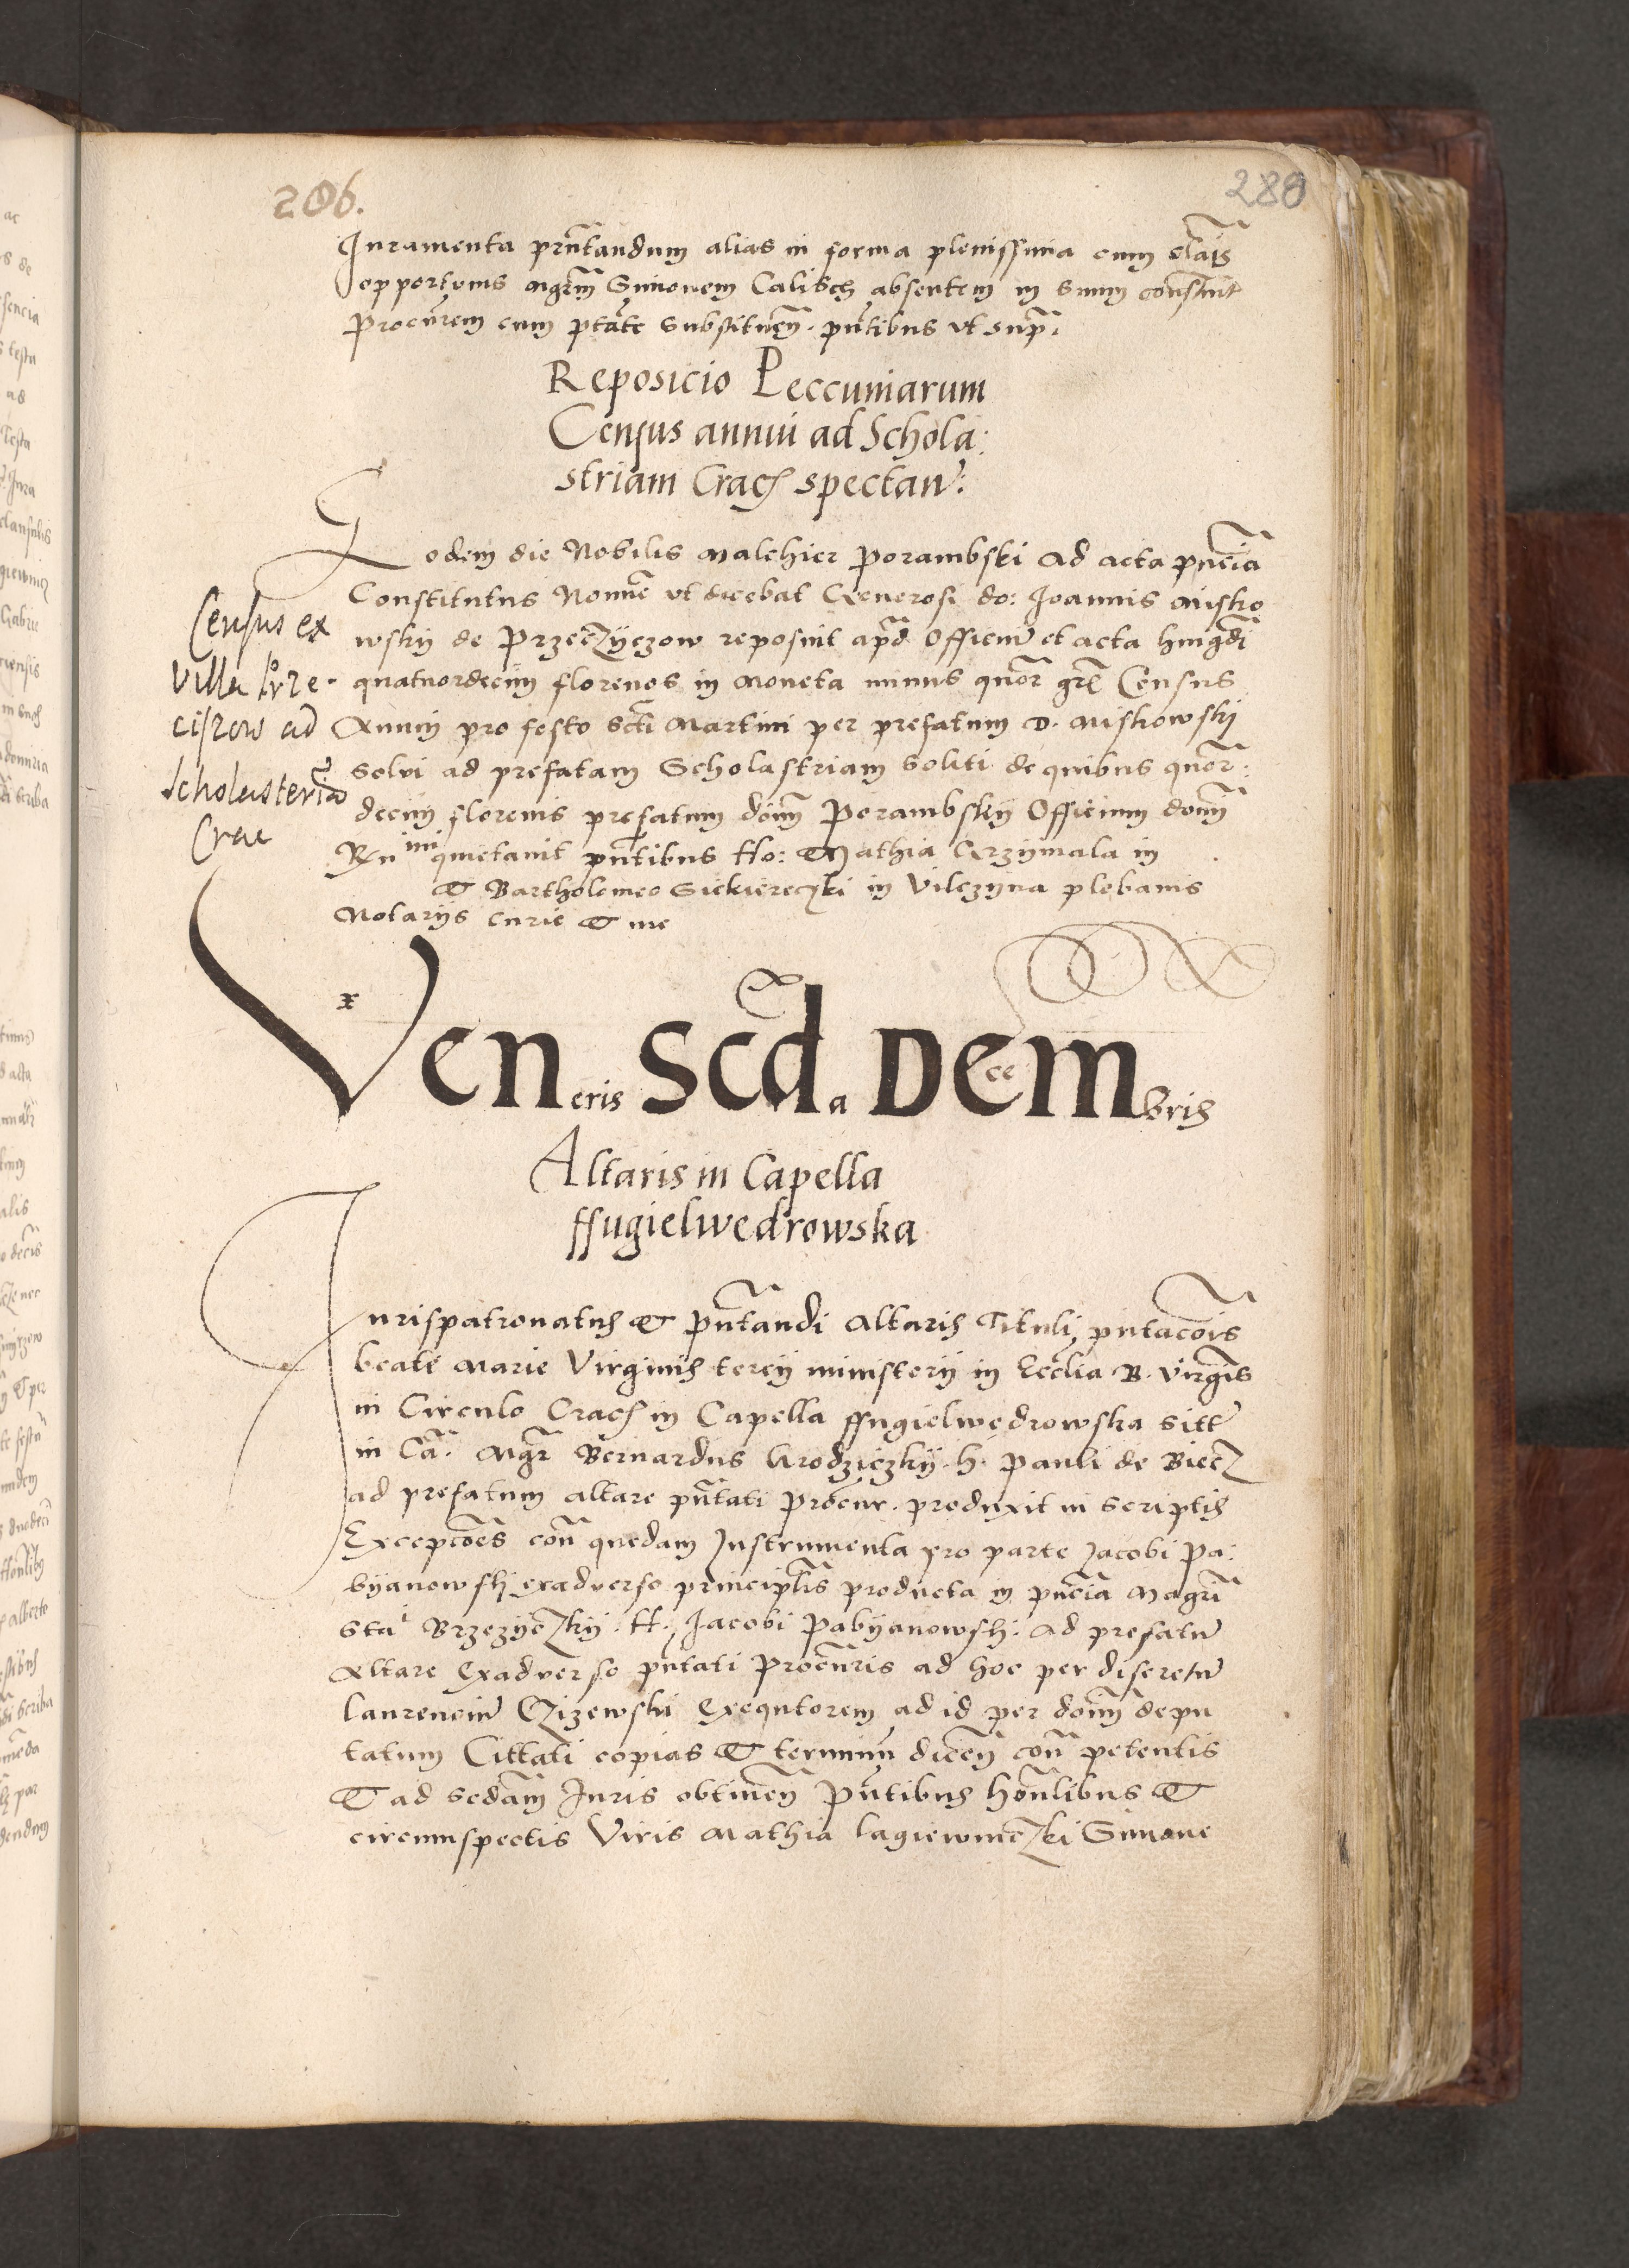 206.
280
Juramenta pñtandum alias in forma plenissima cum clãis
opportunis mgrm Simonem Calisch absentem in suum constuit
Procurem cum ptãte substituen. pntibus vt supra.
Reposicio Peccuniarum
Census annui ad Schola:
striam Crac spectan:
Eodem die Nobilis Malchier Porambski ad acta pñcia
Constitutus Nomine vt dicebat Generosi do: Joannis Misko
wskij de Przeczyczow reposuit apud Officium et acta huiusmodi
quatuordecim florenos in moneta minus quor grs Census
Annui pro festo Scti Martini per prefatum D. Miskowskij
solvi ad prefatam Scholastriam soliti de quibus quor:
decim florenis prefatum donm Porambskij Officium domi
Rmi quietavit pntibus Ho: Mathia Grzymala in
& Bartholomeo Siekiereczki in Vilczyna plebanis
Notarijs curie & me
Census ex
villa Prze-
ciszow ad
Scholasteriam
Crac
x
Veneris Scda Decembris
Altaris in Capella
ffugielwedrowska
Jurispatronatus & pñtandi Altaris Tituli pñtacõis
beate Marie Virginis tercij ministerij in Ecclia B. Virgis
in Circulo Crac in Capella ffugielwedrowska sitt
in Ca. Mgr Bernardus Grodzieczkij. h. Pauli de Biecz
ad prefatum altare pñtati procur. produxit in scriptis
Excepcões con quedam Instrumenta pro parte Jacobi Pa:
byanowski exadverso principlis producta in pñcia Magri
Sta Brzezyczkij. H. Jacobi Pabyanowski. ad prefatu
Altare Exadverso pñtati procuris ad hoc per discretu
Laurenciu Czizewski Exequtorem ad id per donm depu
tatum Cittati copias & terminum dicen con petentis
& ad sedam Juris obtinen Pñtibus honlibus &
circumspectis Viris Mathia Lagiewniczki Simone